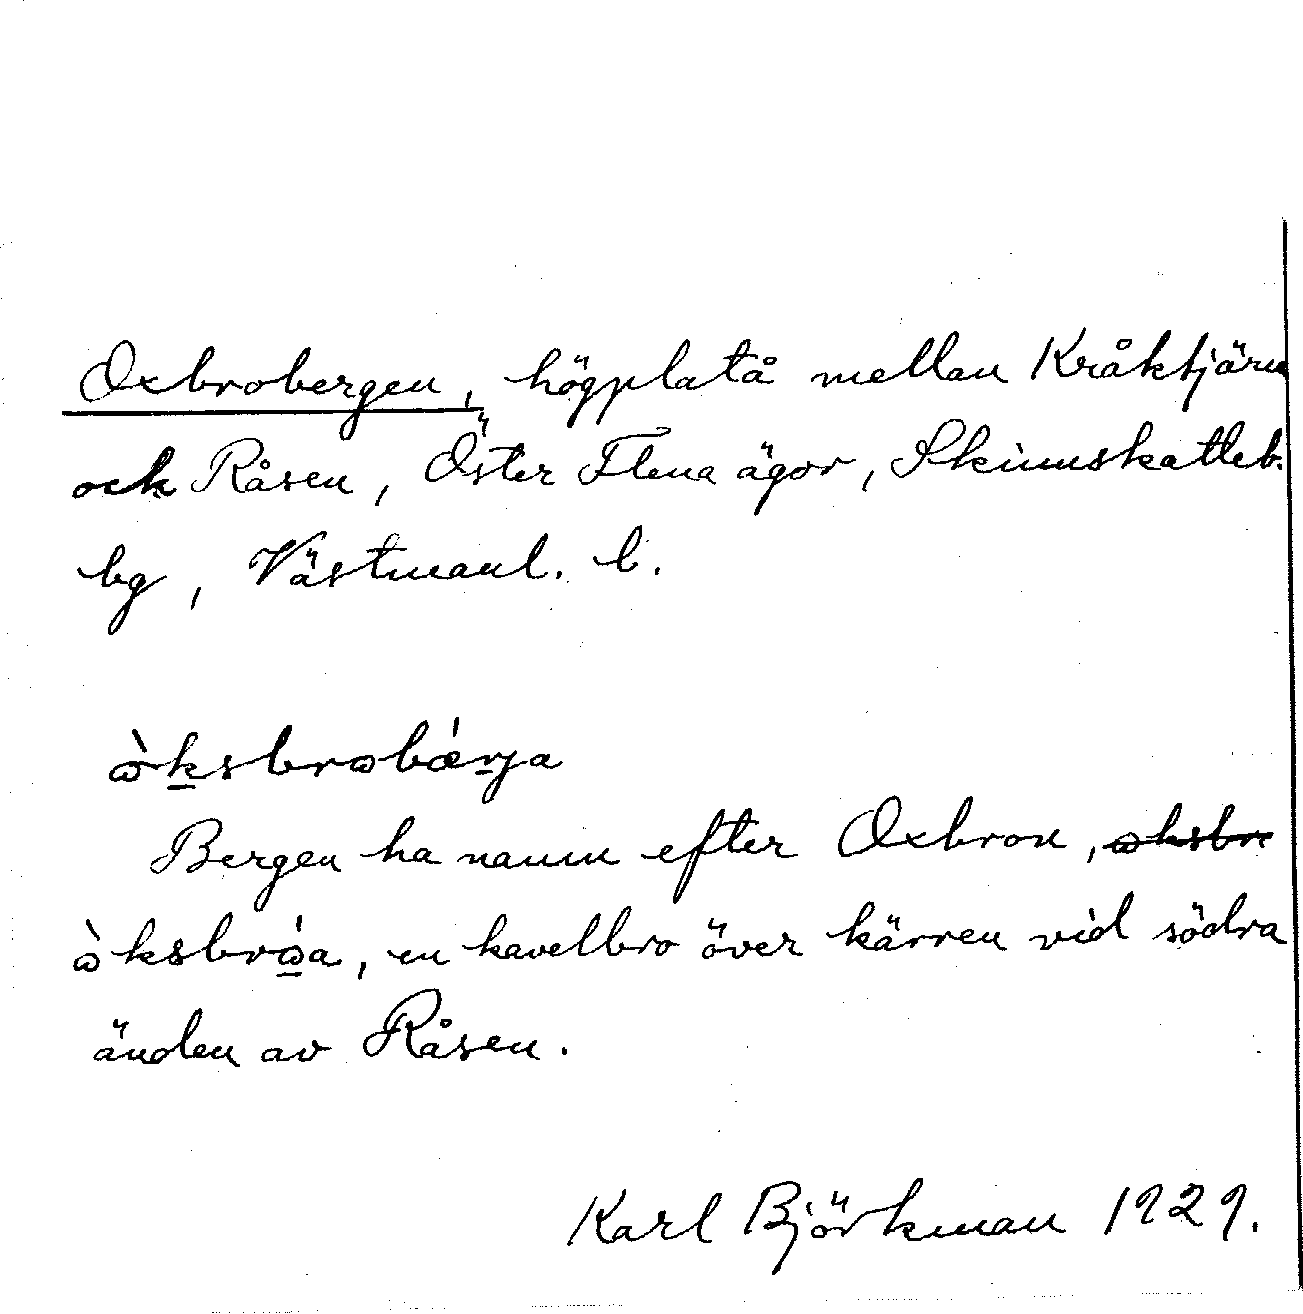 Oxbrobergen, högplatå mellan Kråktjärn
och Råsen, Öster Flena ägor, Skinnskatteb.
bg, Västmanl. l.
ὼksbrωbǽrja
Bergen ha namn efter Oxbron, ωksbr
ὼksbrώa, en kavelbro över kärren vid södra
änden av Råsen.
Karl Björkman 1929.